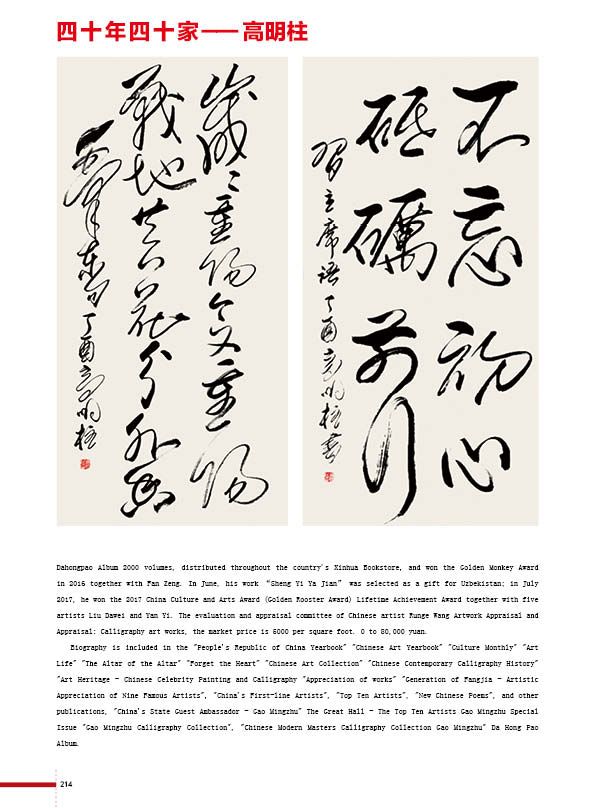 四十年四十家——高明柱
不忘初心
砥礪前行
習主席語丁酉高明柱書
歲〻重陽今又重陽
戰地黃花分外香
丁酉高明柱
Dahongpao Album 2000 volumes, distributed throughout the country's Xinhua Bookstore, and won the Golden Monkey Award
in 2016 together with Fan Zeng. In June, his work “Sheng Yi Ya Jian” was selected as a gift for Uzbekistan; in July
2017, he won the 2017 China Culture and Arts Award (Golden Rooster Award) Lifetime Achievement Award together with five
artists Liu Dawei and Yan Yi. The evaluation and appraisal committee of Chinese artist Runge Wang Artwork Appraisal and
Appraisal: Calligraphy art works, the market price is 5000 per square foot. 0 to 80,000 yuan.
Biography is included in the "People's Republic of China Yearbook" "Chinese Art Yearbook" "Culture Monthly" "Art
Life" "The Altar of the Altar" "Forget the Heart" "Chinese Art Collection" "Chinese Contemporary Calligraphy History"
"Art Heritage - Chinese Celebrity Painting and Calligraphy "Appreciation of works" "Generation of Fangjia - Artistic
Appreciation of Nine Famous Artists", "China's First-line Artists", "Top Ten Artists", "New Chinese Poems", and other
publications, "China's State Guest Ambassador - Gao Mingzhu" The Great Hall - The Top Ten Artists Gao Mingzhu Special
Issue "Gao Mingzhu Calligraphy Collection", "Chinese Modern Masters Calligraphy Collection Gao Mingzhu" Da Hong Pao
Album.
214